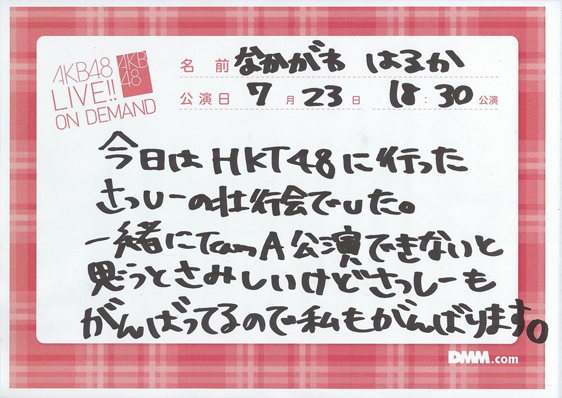 AKB48
LIVE!!
ON DEMAND
AKB
48
名前 なかがわ はるか
公演日 7月23日 18:30公演
今日はHKT48に行った
さっしーの壮行会でした。
一緒にTeamA公演できないと
思うとさみしいけどさっしーも
がんばってるので私もがんばります。
DMM.com